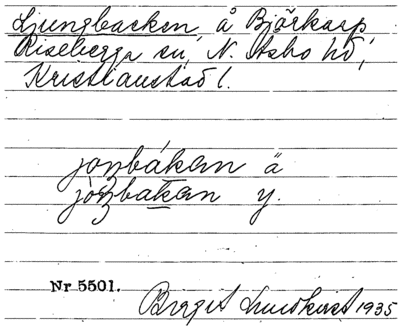 Ljungbacken, å Björkarp
Riseberga sn, N. Åsbo hd,
Kristianstad l.
joŋbákan ä
jòŋbakan y.
Nr 5501.
Birgit Lundkvist 1935